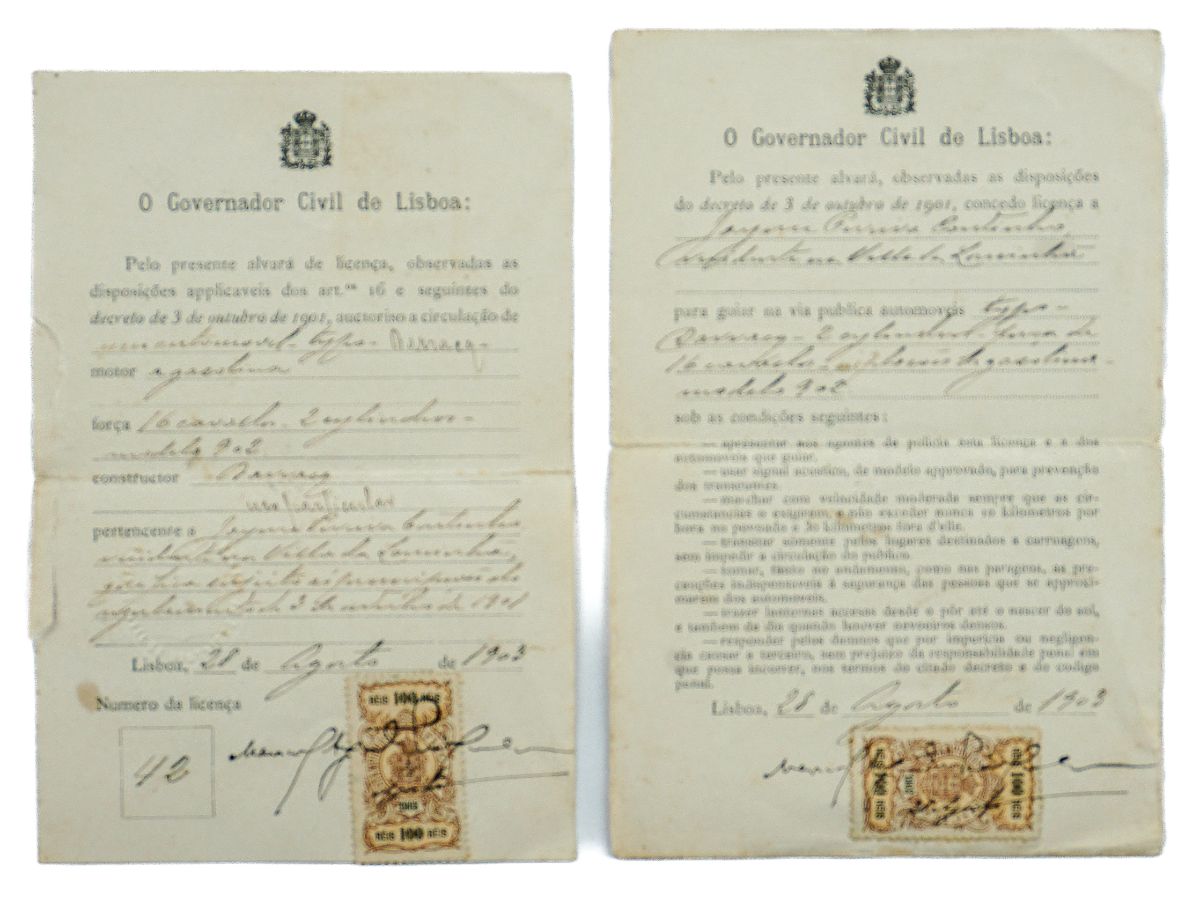 O Governador Civil de Lisboa:
Pelo presente alvará de licença, observadas as
disposições applicaveis dos art.os 16 e seguintes do
decreto de 3 de outubro de 1901, auctoriso a circulação de
um automovel - typo - Darracq -
motor a gasolina
força 16 cavallos - 2 cylindros -
modelo 902
constructor Darracq
uso particular
pertencente a Jayme Pereira Coutinho
residente na Villa da Lourinhã,
regulamento de 3 de outubro de 1901
Lisboa, 28 de Agosto de 1903
Numero da licença
42
RÉIS 100 RÉIS
RÉIS 100 RÉIS
O Governador Civil de Lisboa:
Pelo presente alvará, observadas as disposições
do decreto de 3 de outubro de 1901, concedo licença a
Jayme Pereira Coutinho,
residente na Villa da Lourinhã
para guiar na via publica automoveis typo -
Darracq - 2 cylindros, força de
16 cavallos - de gasolina -
modelo 902
sob as condições seguintes:
— apresentar aos agentes de policia esta licença e a dos
automoveis que guiar.
— usar signal acustico, de modelo approvado, para prevenção
dos transeuntes.
— marchar com velocidade moderada sempre que as cir-
cumstancias o exigirem, e não exceder nunca 10 kilometros por
hora no povoado e 30 kilometros fóra d'elle.
— transitar sómente pelos logares destinados a carruagem,
sem impedir a circulação do publico.
— tomar, tanto no andamento, como nas paragens, as pre-
cauções indispensaveis á segurança das pessoas que se approxi-
marem dos automoveis.
— trazer lanternas accesas desde o pôr até o nascer do sol,
e tambem de dia quando houver nevoeiros densos.
— responder pelos damnos que por impericia ou negligen-
cia causar a terceiro, sem prejuizo da responsabilidade penal em
que possa incorrer, nos termos do citado decreto e do codigo
penal.
Lisboa, 28 de Agosto de 1903
RÉIS 100 RÉIS
RÉIS 100 RÉIS